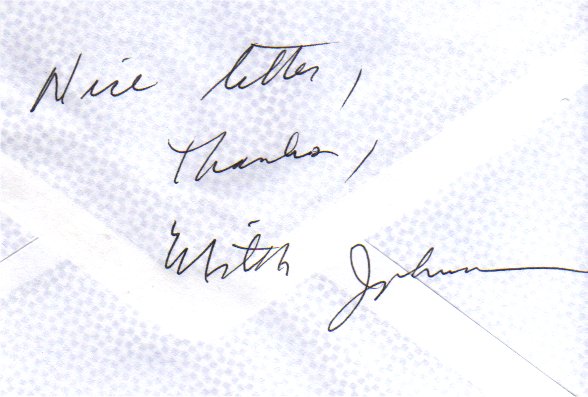 Nice letter,
Thanks,
Johnson